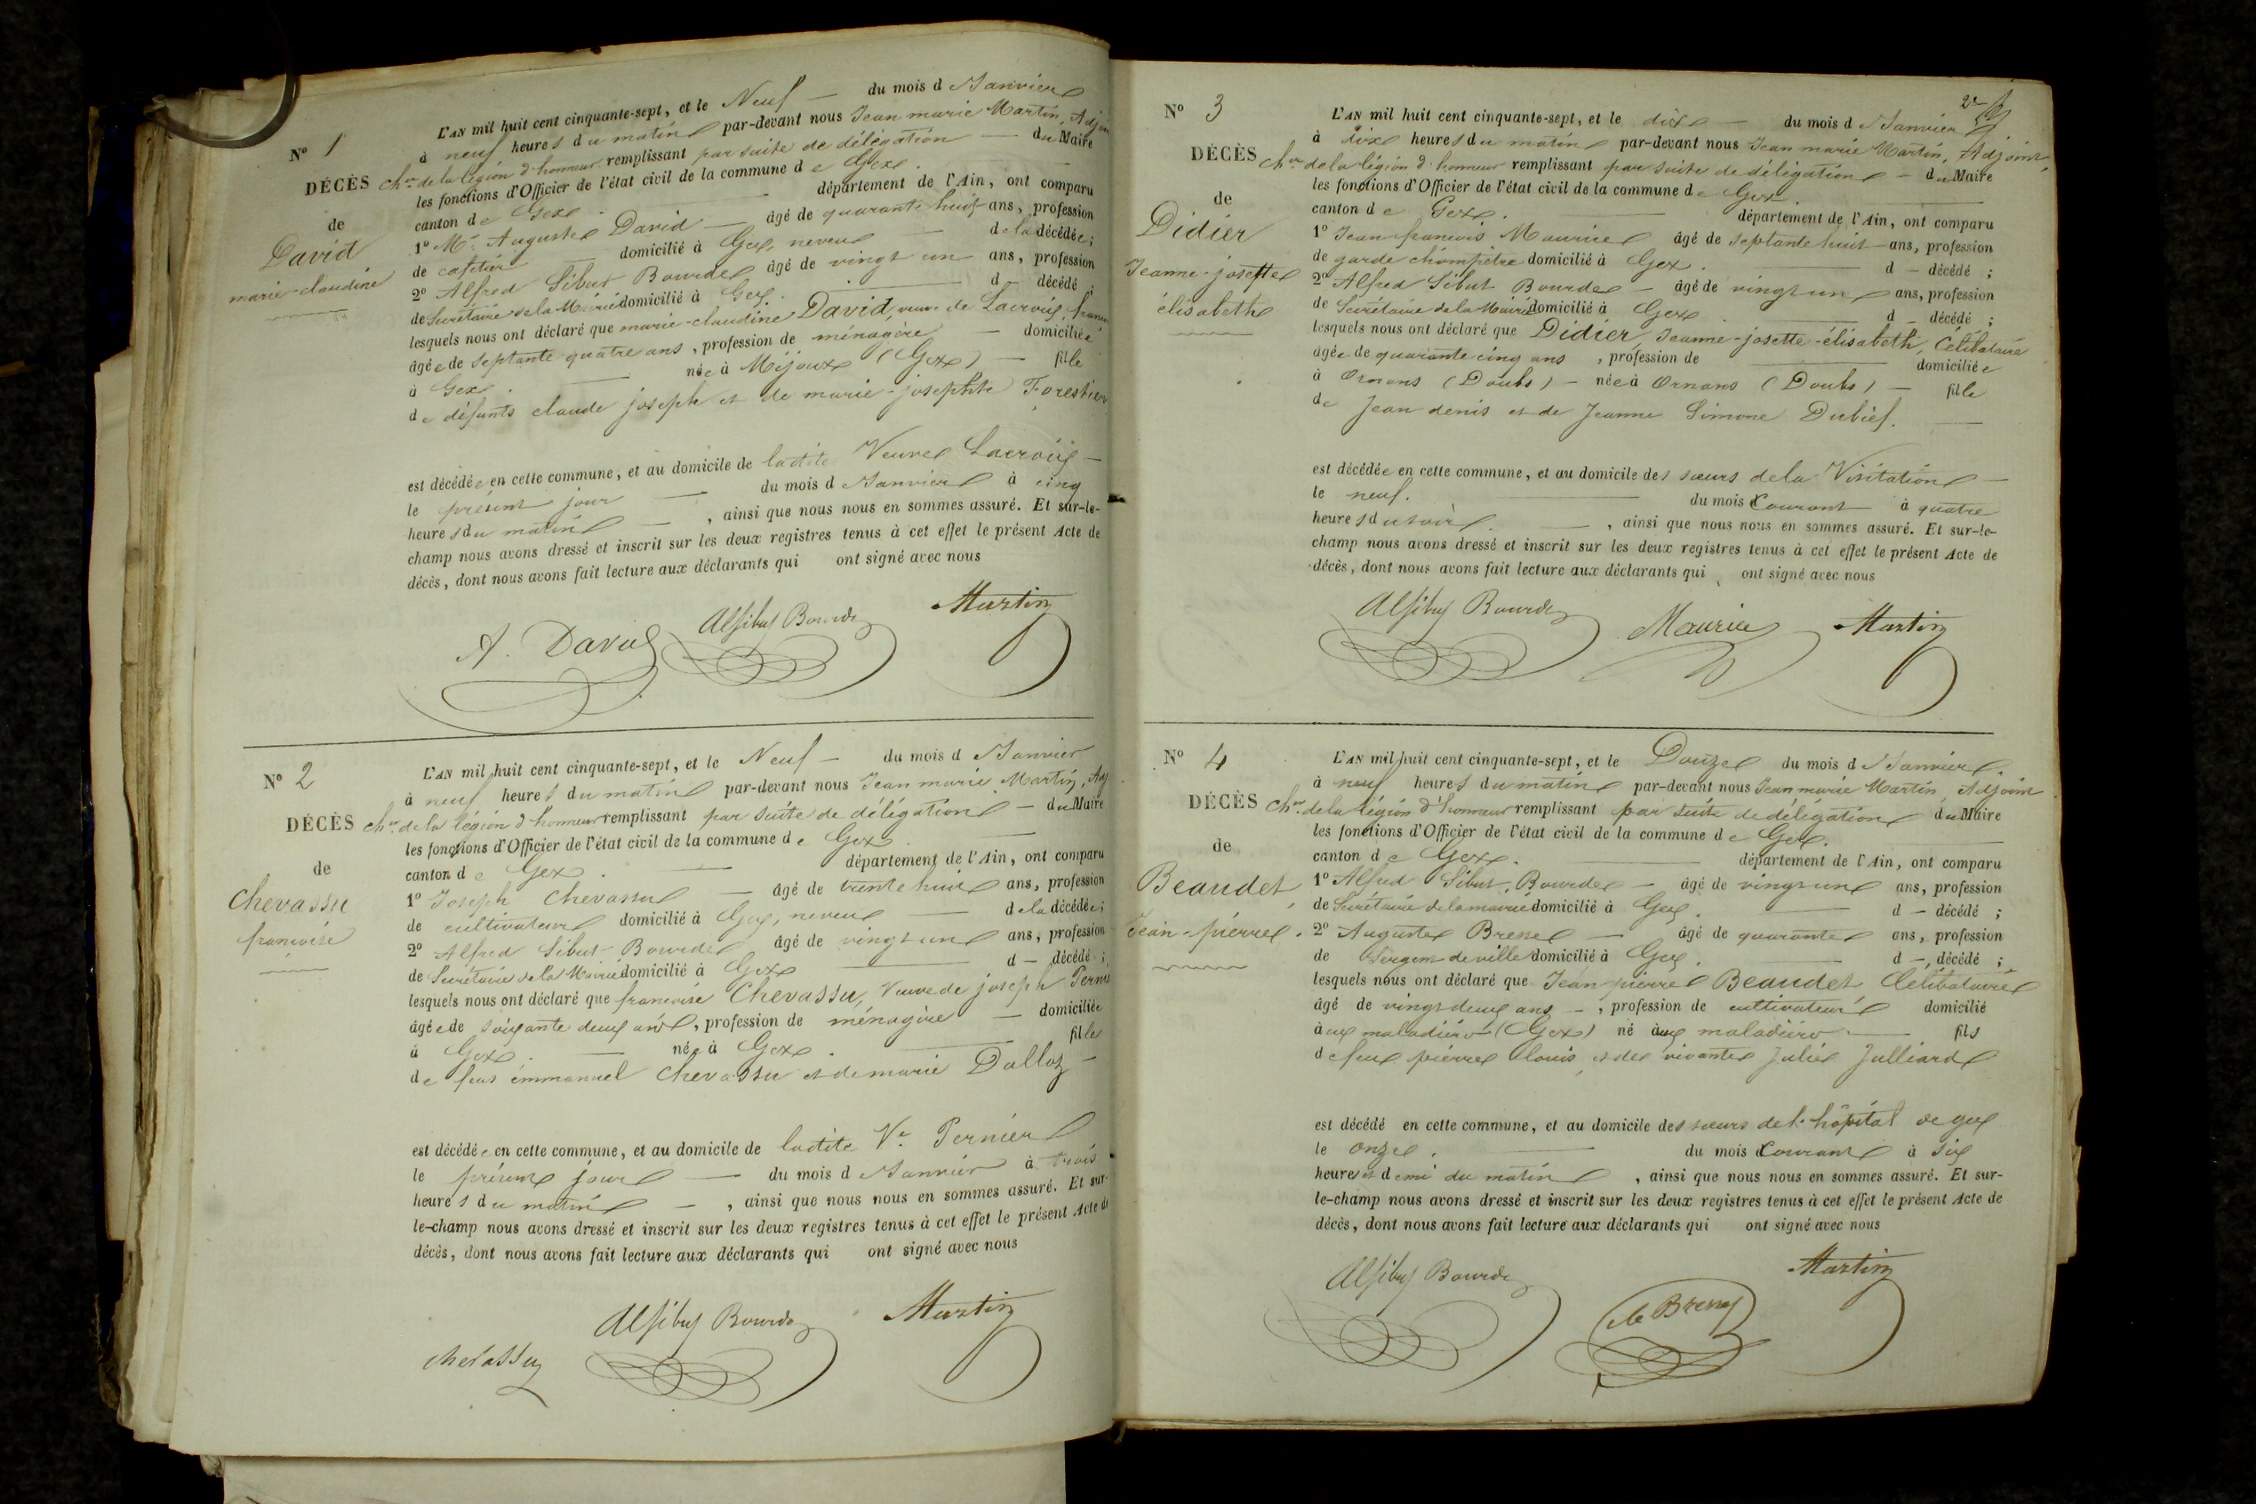 N° 1
DÉCÈS
de
David
marie-claudine
L'AN mil huit cent cinquante-sept, et le Neuf — du mois d Janvier
à neuf heures du matin par-devant nous Jean marie Martin, Adjoin
chr de la légion d'honneur remplissant par suite de délégation — du Maire
les fonctions d'Officier de l'état civil de la commune de Gex.
canton de Gex. — département de l'Ain, ont comparu
1° Mr Auguste David — âgé de quarante huit ans, profession
de cafetier — domicilié à Gex, neveu — de la décédée;
2° Alfred Sibut Bourde âgé de vingt un ans, profession
de Secrétaire de la Mairie domicilié à Gex. — d — décédé;
lesquels nous ont déclaré que marie-claudine David, veuve de Lacroix,
âgée de septante quatre ans, profession de ménagère — domiciliée
à Gex. — née à Mijoux (Gex) — fille
de défunts claude joseph et de marie-josephte Forestier
est décédée en cette commune, et au domicile de ladite Veuve Lacroix —
le présent jour — du mois d Janvier à cinq
heures du matin — , ainsi que nous nous en sommes assuré. Et sur-le-
champ nous avons dressé et inscrit sur les deux registres tenus à cet effet le présent Acte de
décès, dont nous avons fait lecture aux déclarants qui ont signé avec nous
A. David Alf Sibut Bourde Martin
N° 2
DÉCÈS
de
Chevassu
francoise
L'AN mil huit cent cinquante-sept, et le Neuf — du mois d Janvier
à neuf heures du matin par-devant nous Jean marie Martin, Adj
chr de la légion d'honneur remplissant par suite de délégation — du Maire
les fonctions d'Officier de l'état civil de la commune de Gex
canton de Gex. — département de l'Ain, ont comparu
1° Joseph Chevassu — âgé de trente huit ans, profession
de cultivateur domicilié à Gex, neveu — de la décédée;
2° Alfred Sibut Bourde âgé de vingt un ans, profession
de Secrétaire de la Mairie domicilié à Gex — d — décédé;
lesquels nous ont déclaré que francoise Chevassu, Veuve de joseph Pernier
âgée de soixante deux ans, profession de ménagère — domiciliée
à Gex. — née à Gex. — fille
de feus émmanuel Chevassu et de marie Dalloz —
est décédée en cette commune, et au domicile de ladite Ve Pernier
le présent jour — du mois d Janvier à trois
heures du matin — , ainsi que nous nous en sommes assuré. Et sur-
le-champ nous avons dressé et inscrit sur les deux registres tenus à cet effet le présent Acte de
décès, dont nous avons fait lecture aux déclarants qui ont signé avec nous
Chevassu Alf Sibut Bourde Martin
2e
N° 3
DÉCÈS
de
Didier
Jeanne-josette
élisabeth
L'AN mil huit cent cinquante-sept, et le dix — du mois d Janvier
à dix heures du matin par-devant nous Jean marie Martin, Adjoint,
chr de la légion d'honneur remplissant par suite de délégation — du Maire
les fonctions d'Officier de l'état civil de la commune de Gex.
canton de Gex. — département de l'Ain, ont comparu
1° Jean francois Maurice âgé de septante huit ans, profession
de garde champêtre domicilié à Gex. — d — décédé;
2° Alfred Sibut Bourde — âgé de vingt un ans, profession
de Secrétaire de la Mairie domicilié à Gex — d — décédé;
lesquels nous ont déclaré que Didier, Jeanne-josette-élisabeth, Célibataire
âgée de quarante cinq ans, profession de — domiciliée
à Ornans (Doubs) — née à Ornans (Doubs) — fille
de Jean denis et de Jeanne Simone Dubief. —
est décédée en cette commune, et au domicile des sœurs de la Visitation —
le neuf. — du mois Courant à quatre
heures du soir. — , ainsi que nous nous en sommes assuré. Et sur-le-
champ nous avons dressé et inscrit sur les deux registres tenus à cet effet le présent Acte de
décès, dont nous avons fait lecture aux déclarants qui ont signé avec nous
Alf Sibut Bourde Maurice Martin
N° 4
DÉCÈS
de
Beaudet,
Jean-pierre.
L'AN mil huit cent cinquante-sept, et le Douze du mois d Janvier.
à neuf heures du matin par-devant nous Jean marie Martin, Adjoint
chr de la légion d'honneur remplissant par suite de délégation du Maire
les fonctions d'Officier de l'état civil de la commune de Gex.
canton de Gex. — département de l'Ain, ont comparu
1° Alfred Sibut, Bourde — âgé de vingt un ans, profession
de Secrétaire de la mairie domicilié à Gex. — d — décédé;
2° Auguste — âgé de quarante ans, profession
de Sergent de ville domicilié à Gex. — d — décédé;
lesquels nous ont déclaré que Jean pierre Beaudet Célibataire
âgé de vingt deux ans — , profession de cultivateur domicilié
aux maladière (Gex) né aux maladière — fils
de feu pierre Louis, et de vivante Julie Julliard
est décédé en cette commune, et au domicile des sœurs de l'hôpital de gex
le onze. — du mois Courant à six
heures et demi du matin, ainsi que nous nous en sommes assuré. Et sur-
le-champ nous avons dressé et inscrit sur les deux registres tenus à cet effet le présent Acte de
décès, dont nous avons fait lecture aux déclarants qui ont signé avec nous
Alf Sibut Bourde Martin